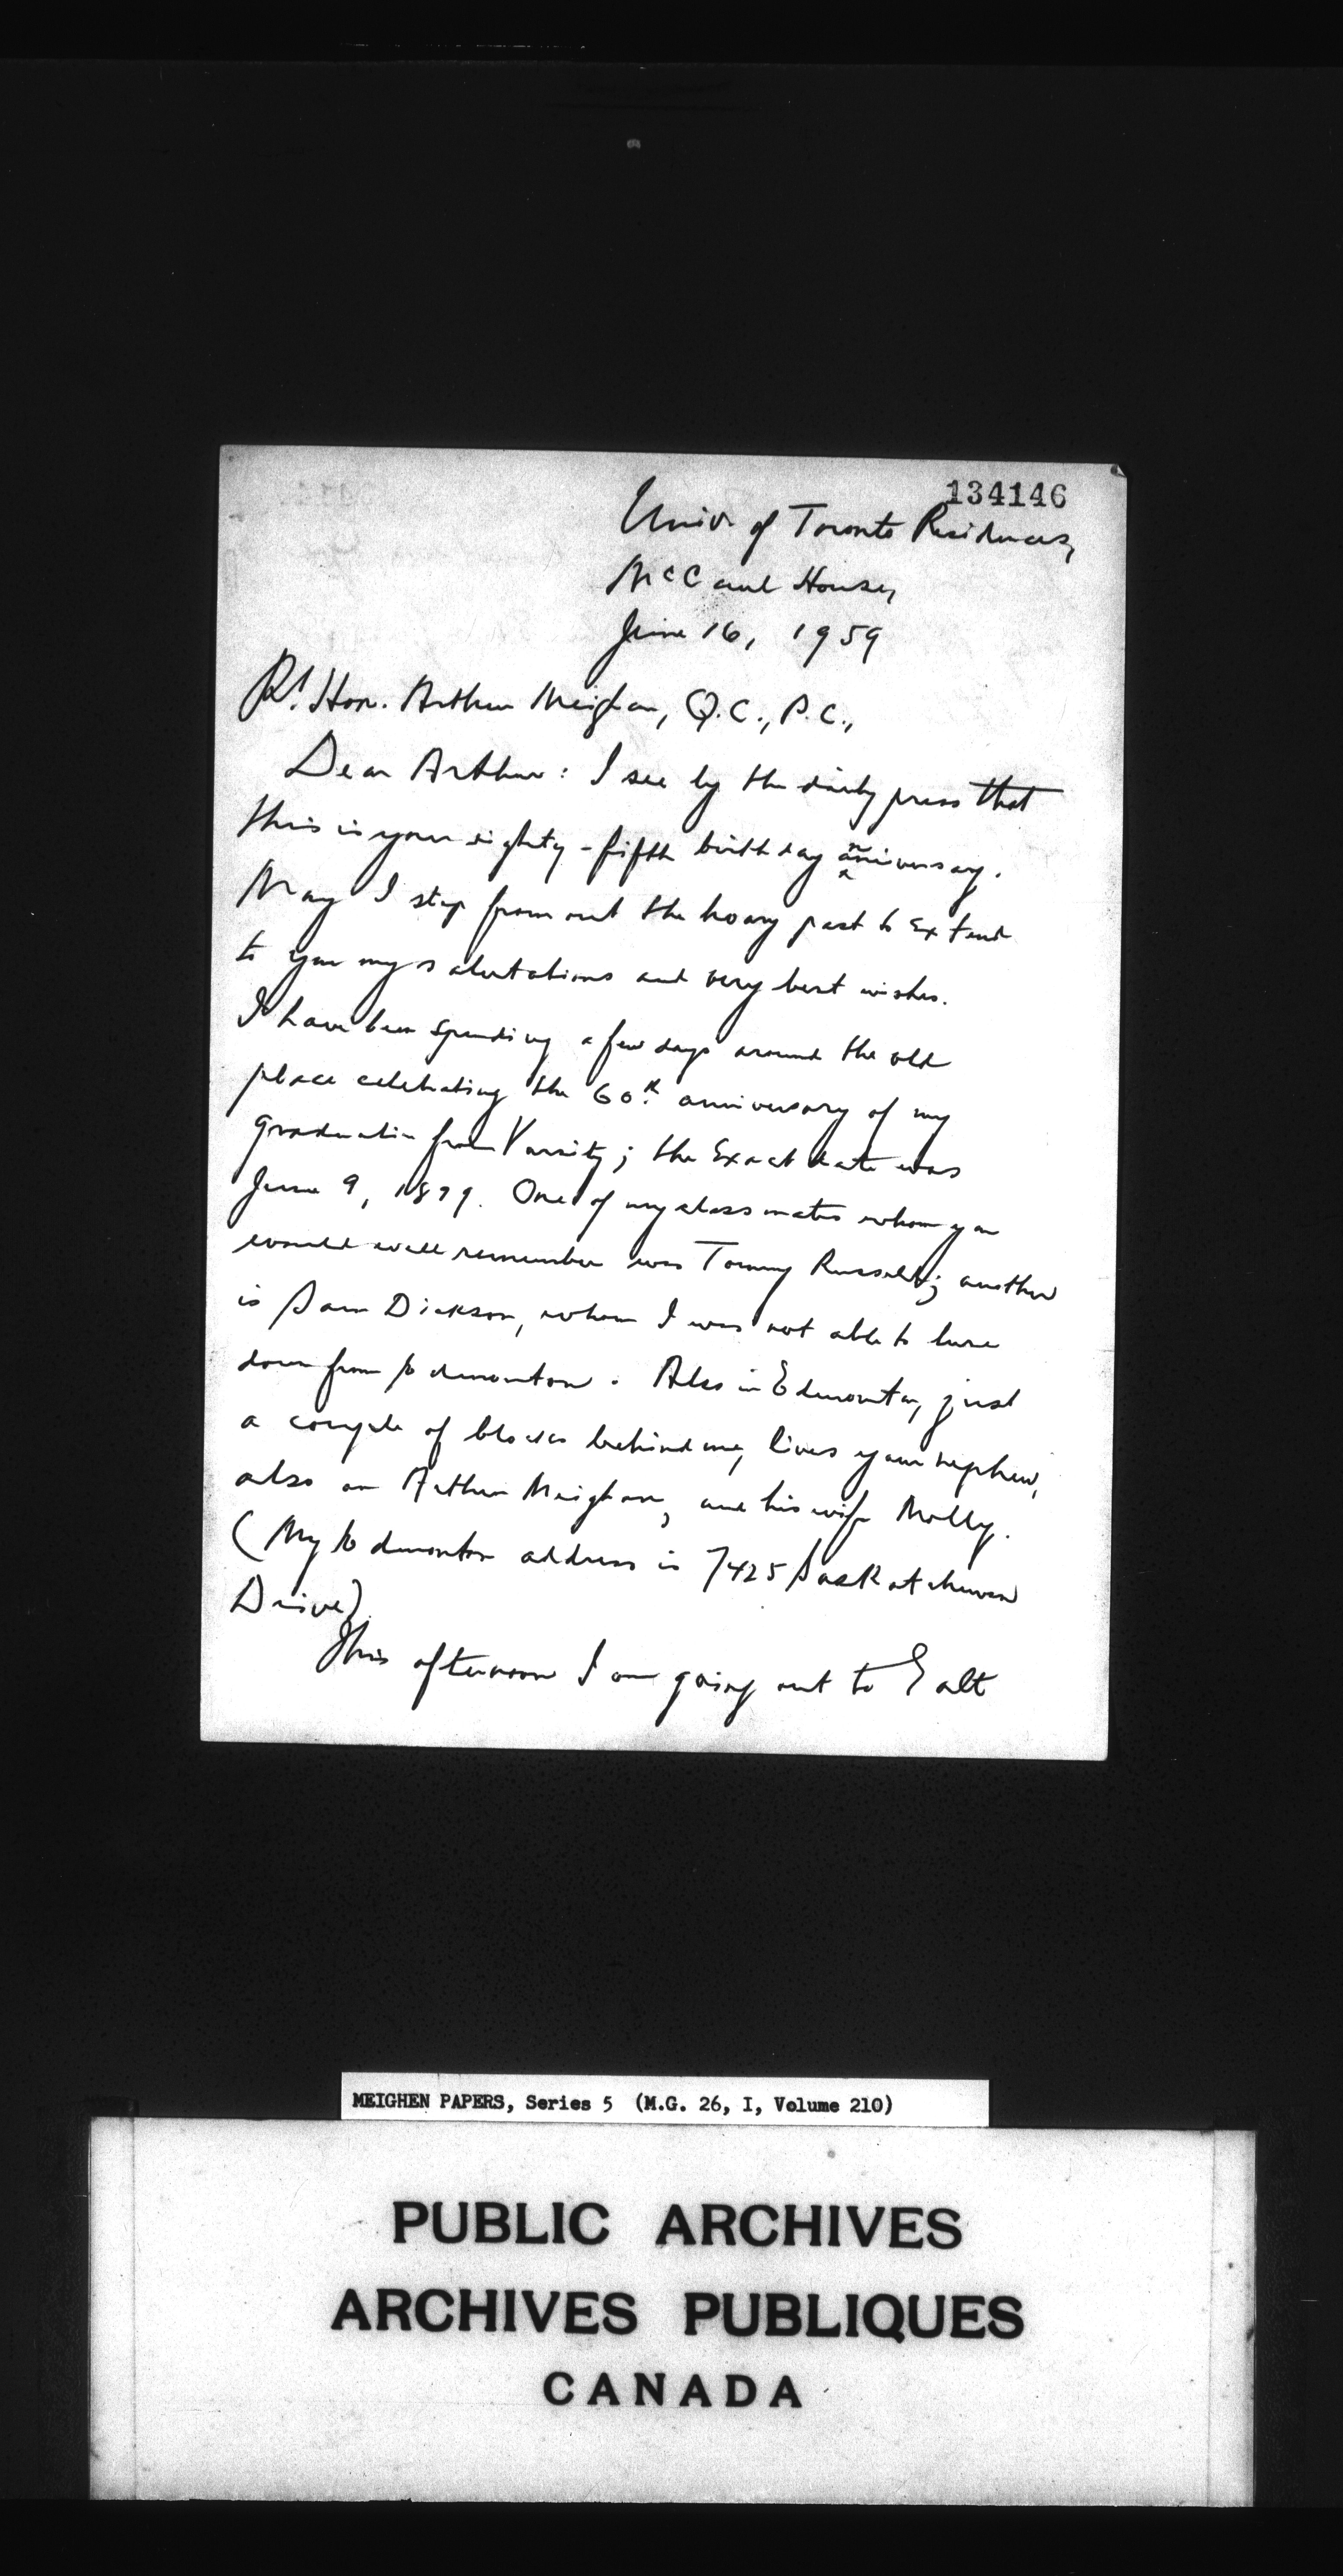 134146
Univ. of Toronto Residences,
McCaul House,
June 16, 1959
Rt. Hon. Arthur Meighen, Q.C., P.C.,
Dear Arthur: I see by the daily press that
this is your eighty-fifth birthday anniversary.
May I step from out the hoary past to extend
to you my salutations and very best wishes.
I have been spending a few days around the old
place celebrating the 60th anniversary of my
graduation from Varsity; the exact date was
June 9, 1899. One of my classmates whom you
would well remember was Tommy Russell; another
is Sam Dickson, whom I was not able to lure
down from Edmonton. Also in Edmonton, just
a couple of blocks behind me, lives your nephew,
also an Arthur Meighen, and his wife Molly.
(My Edmonton address is 7425 Saskatchewan
Drive)
This afternoon I am going out to Galt
MEIGHEN PAPERS, Series 5 (M.G. 26, I, Volume 210)
PUBLIC ARCHIVES
ARCHIVES PUBLIQUES
CANADA